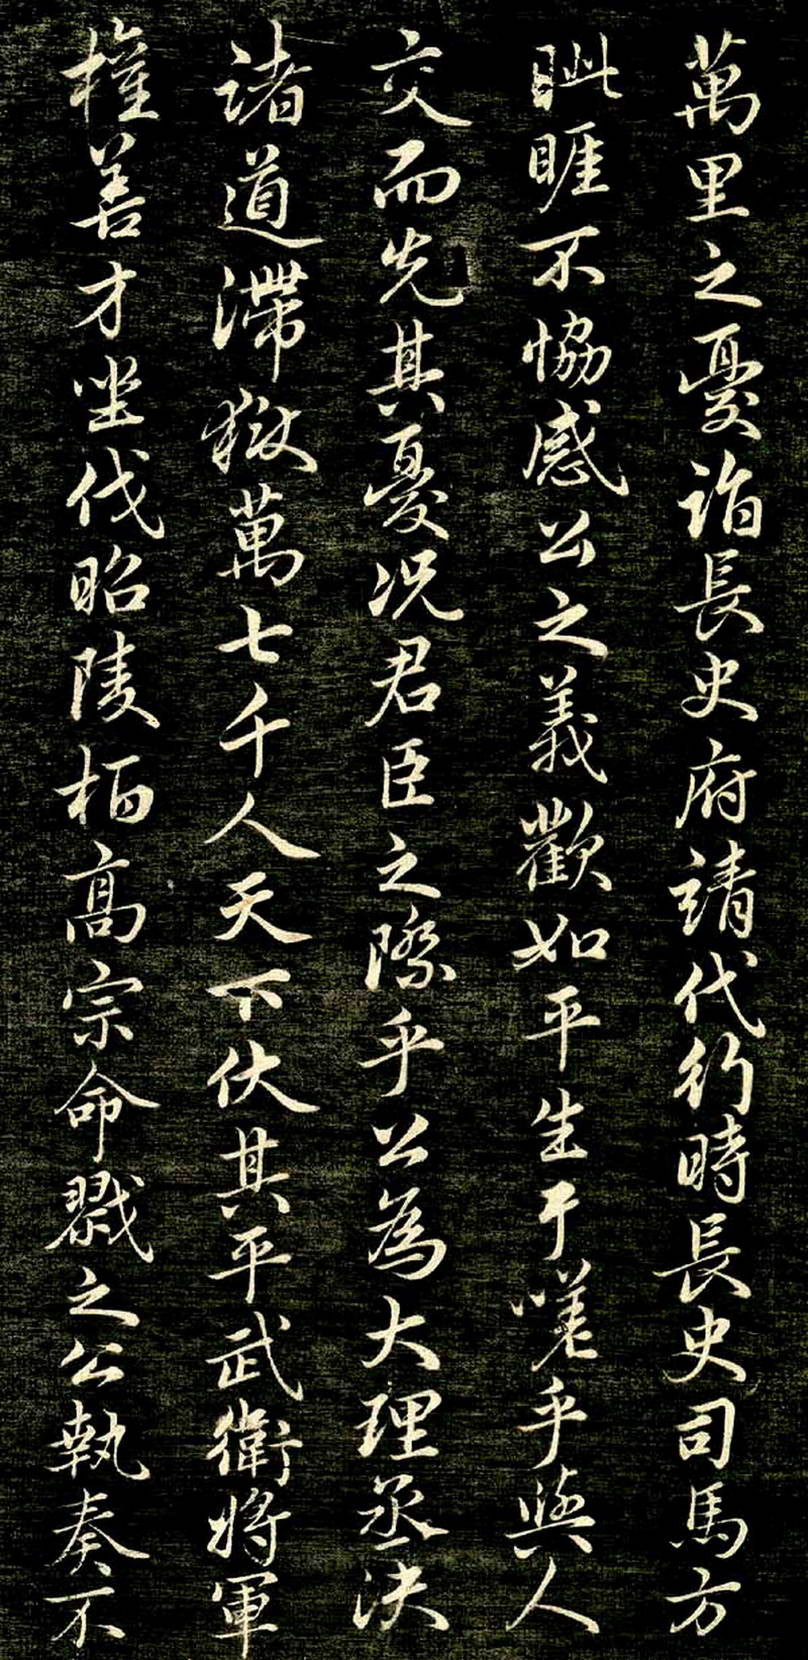 萬里之憂詣長史府請代行時長史司馬方
眦睚不協感公之義歡如平生于嗟乎與人
交而先其憂况君臣之際乎公為大理丞決
諸道滯獄萬七千人天下伏其平武衛將軍
權善才坐伐昭陵栢高宗命戮之公執奏不